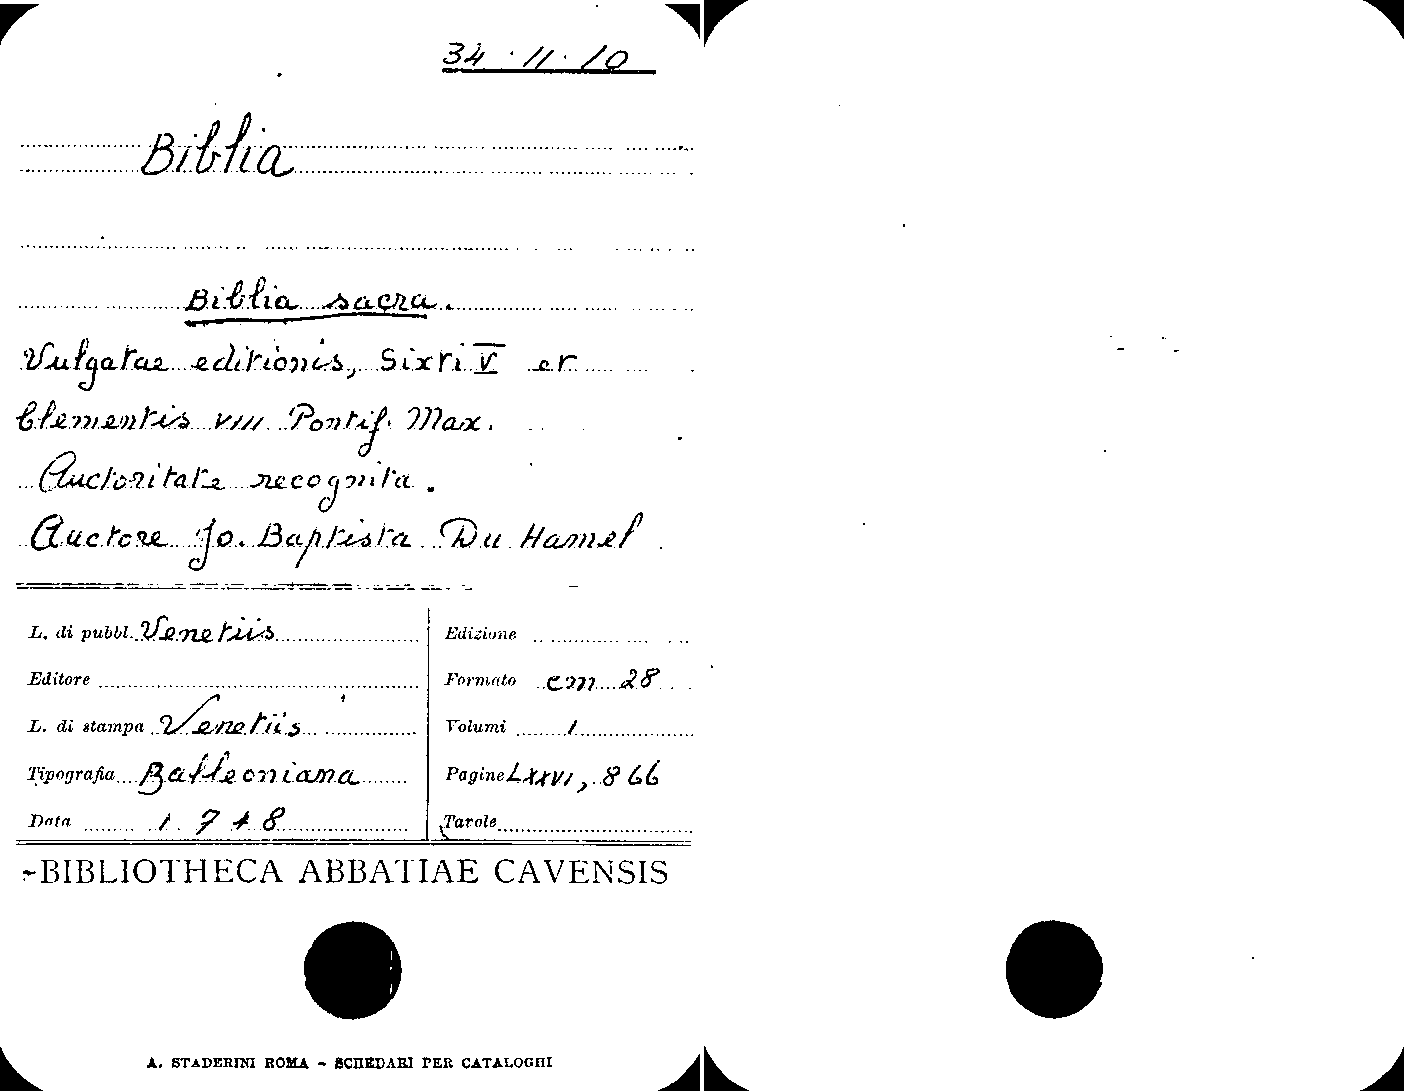 34 · 11 · 10
Biblia
Biblia sacra.
Vulgatae editionis, Sixti V et
Clementis VIII Pontif. Max.
Auctoritate recognita.
Auctore Jo. Baptista Du Hamel
L. di pubbl. Venetiis
Edizione
Editore
Formato cm 28
L. di stampa Venetiis
Volumi 1
Tipografia Balleoniana
Pagine LXXVI, 866
Data 1748
Tavole
BIBLIOTHECA ABBATIAE CAVENSIS
A. STADERINI ROMA - SCHEDARI PER CATALOGHI